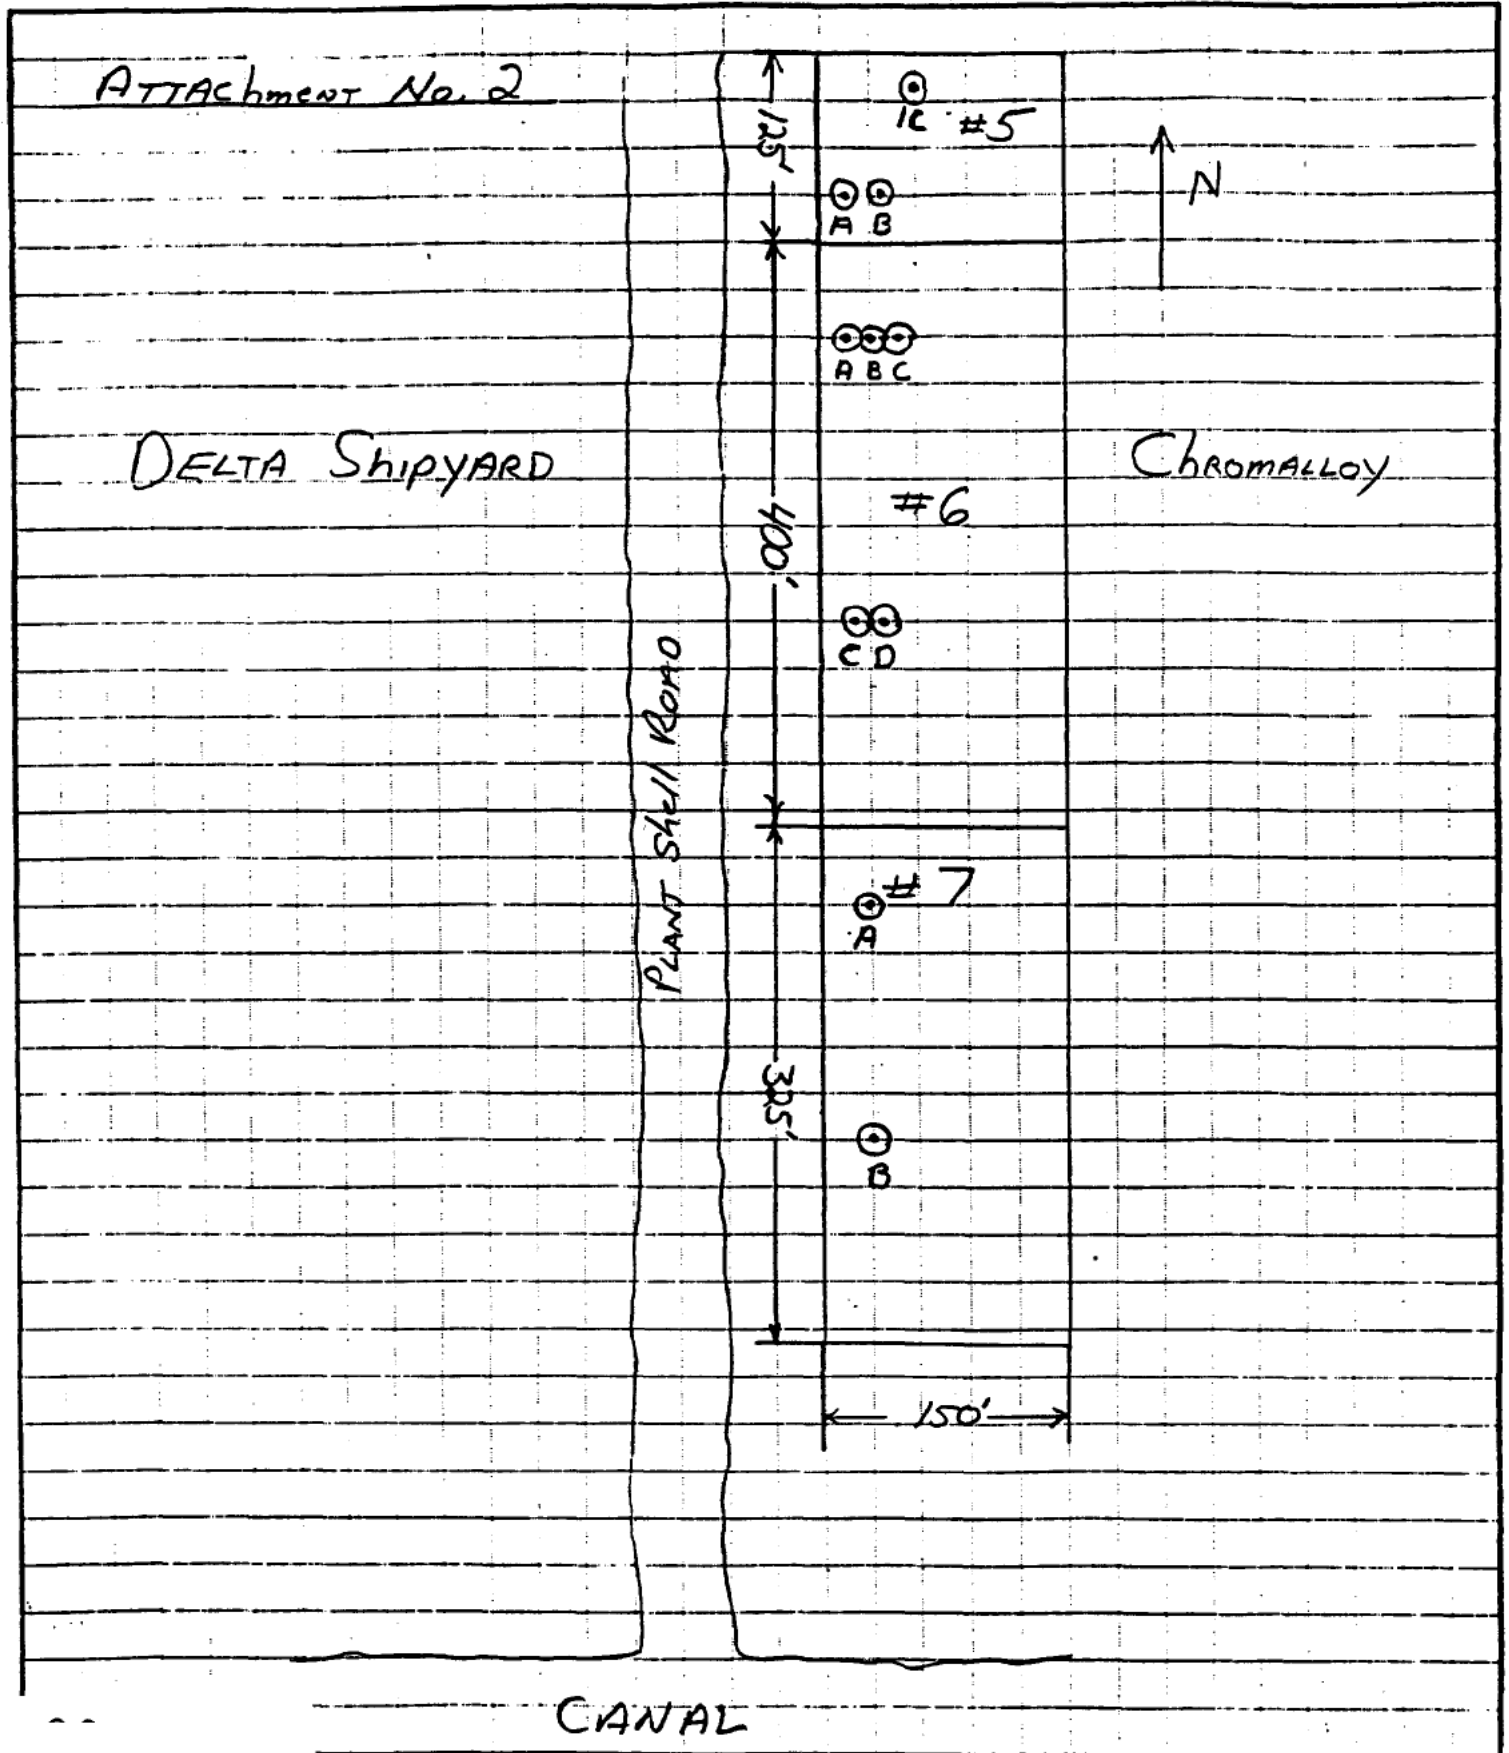 ATTAChmenT No. 2
125'
1C #5
N
A B
A B C
DELTA ShipYARD
ChROMALLOY
#6
400'
C D
PLANT Shell ROAD
#7
A
B
150'
CANAL